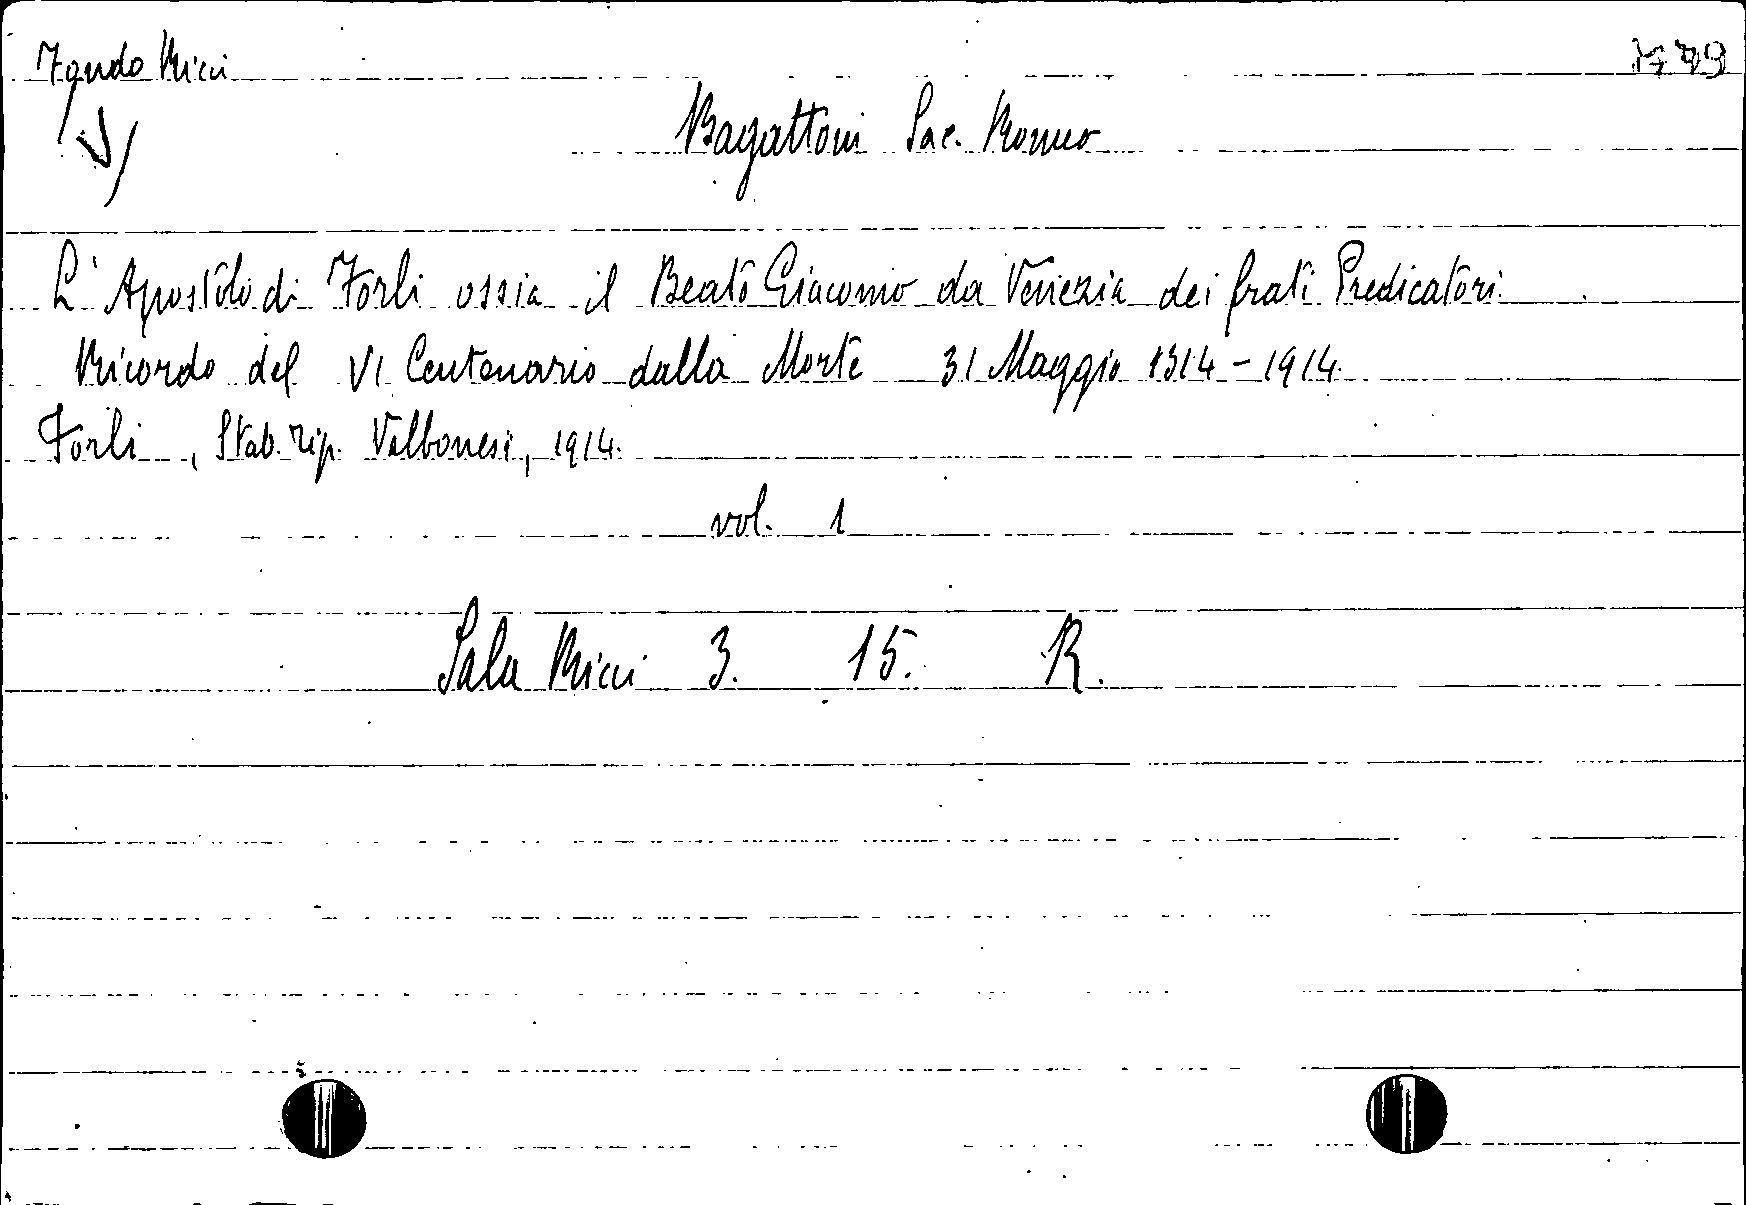 Fondo Ricci
Bagattoni Sac. Romeo
L'Apostolo di Forlì ossia il Beato Giacomo da Venezia dei frati Predicatori.
Ricordo del VI Centenario dalla Morte 31 Maggio 1314-1914.
Forlì, Stab. Tip. Valbonesi, 1914.
vol. 1
Sala Ricci 3. 15. R.